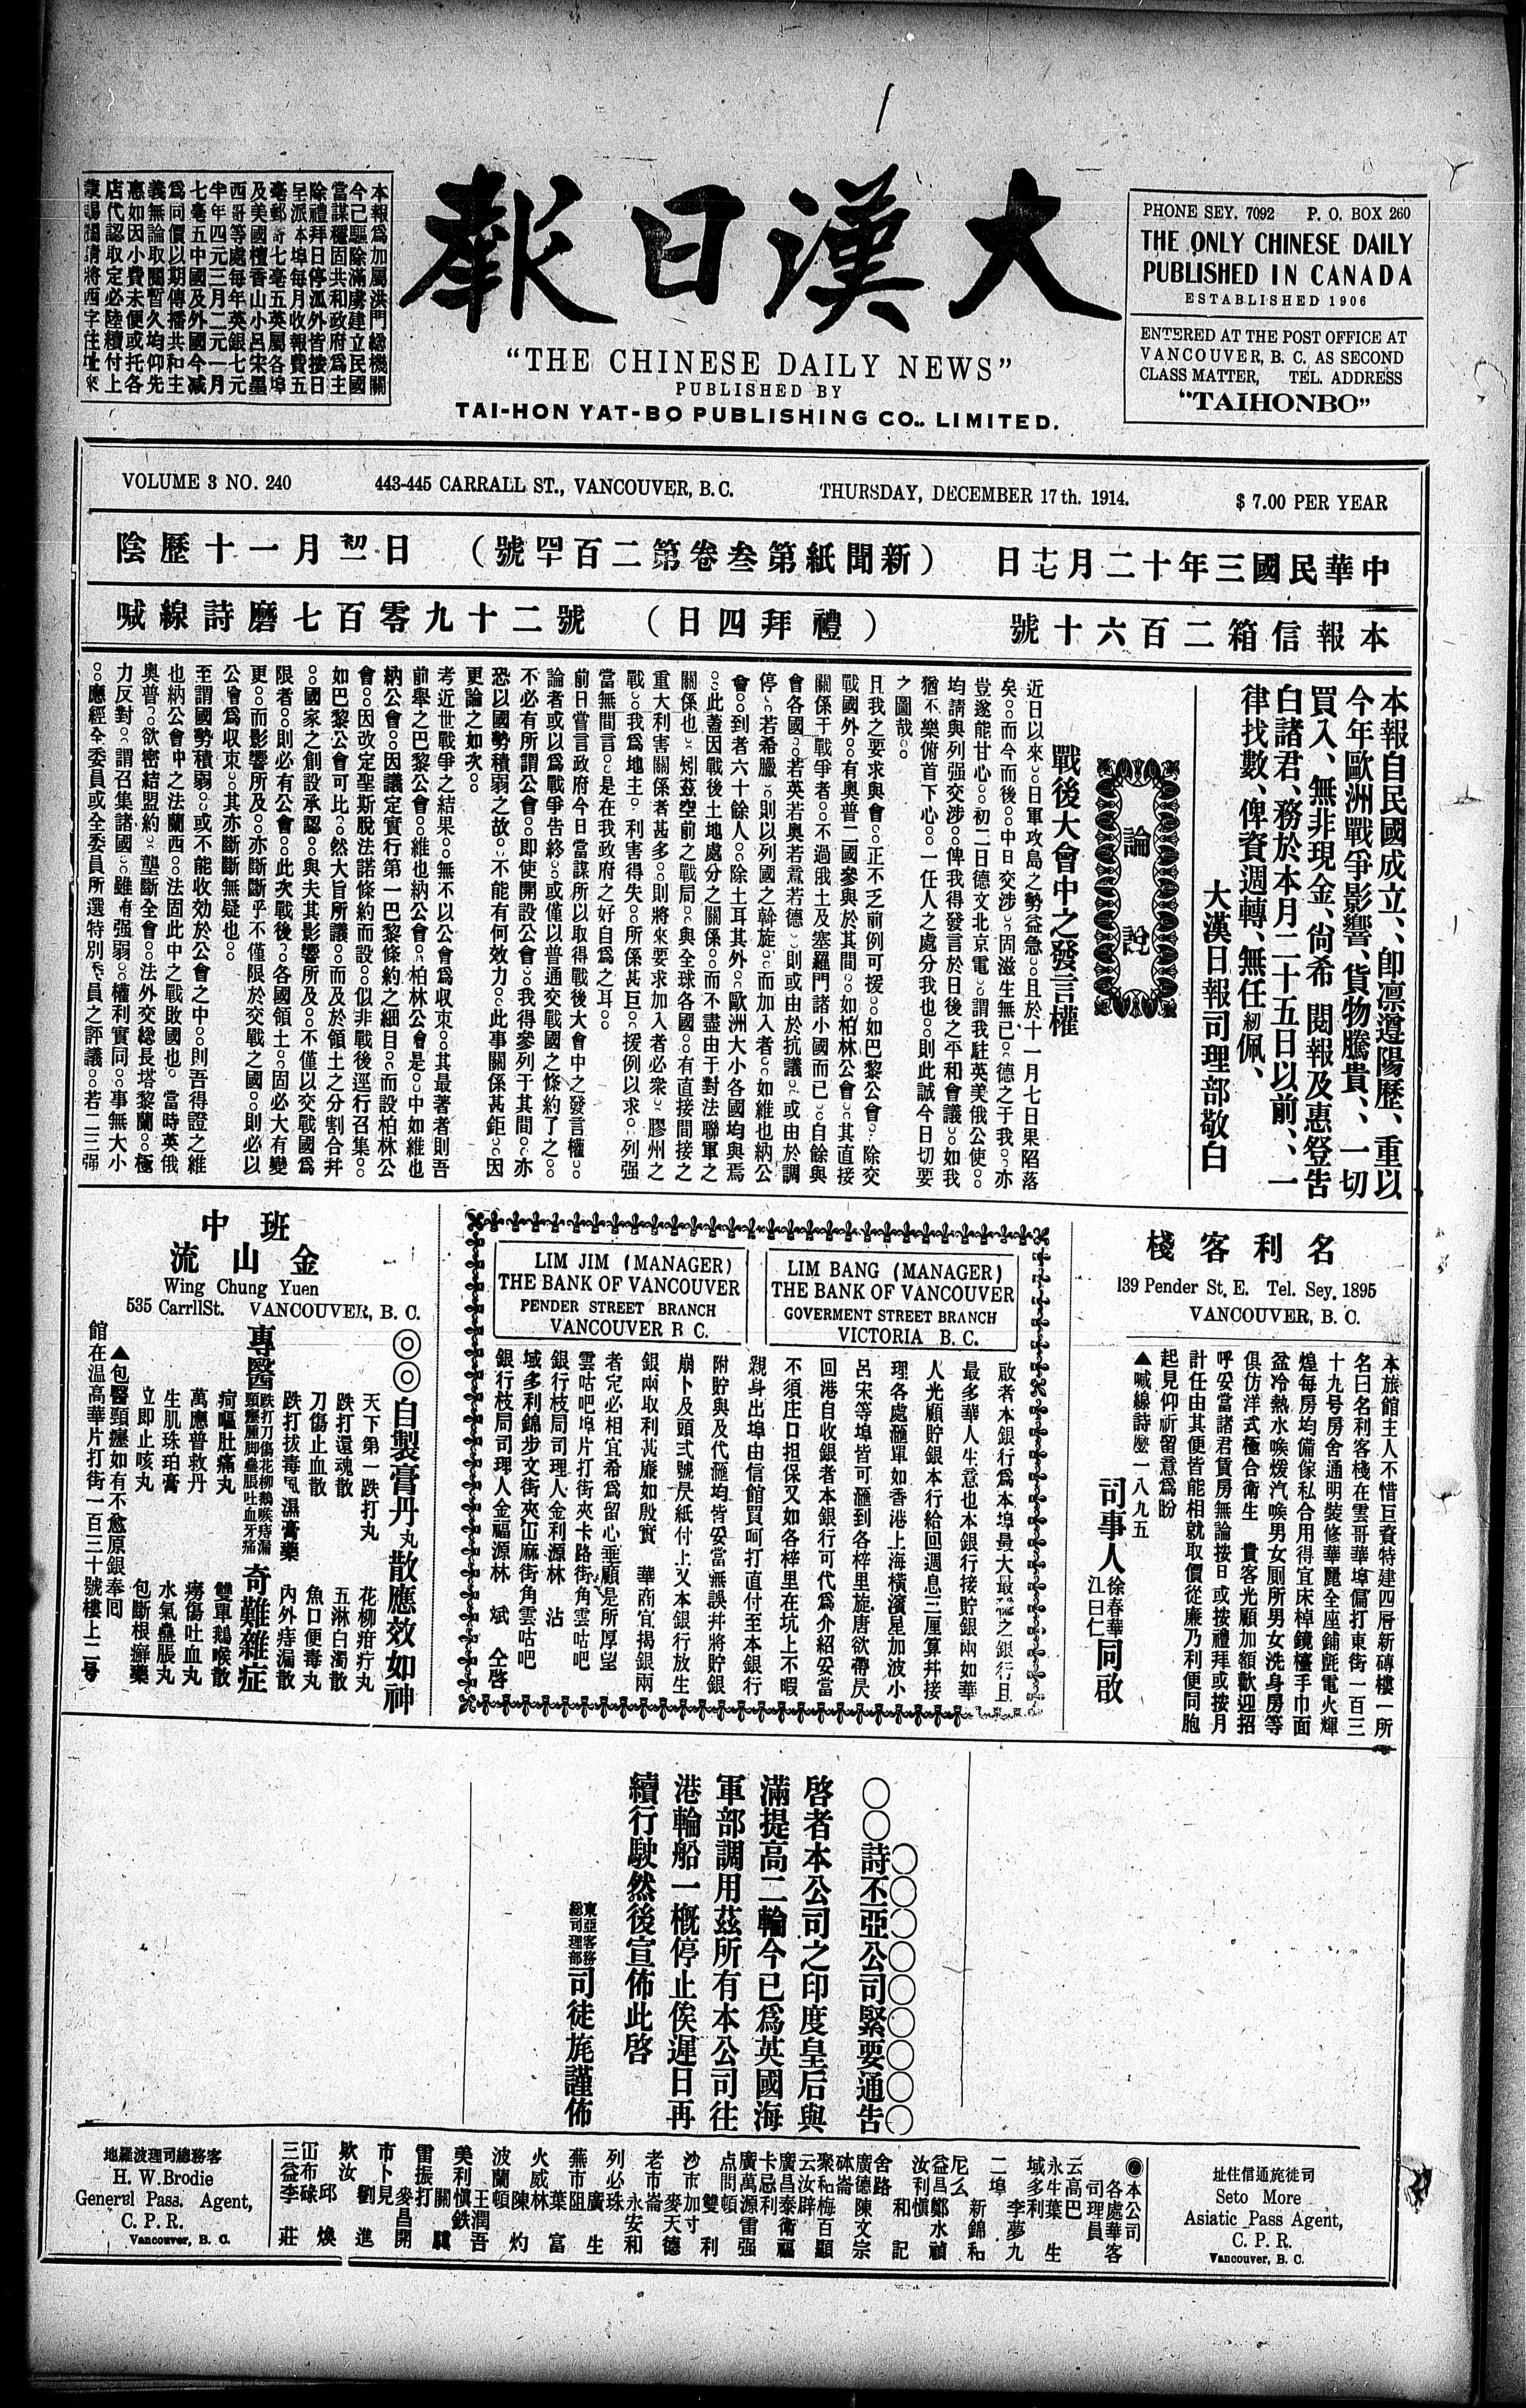 大漢日報
"THE CHINESE DAILY NEWS"
PUBLISHED BY
TAI-HON YAT-BO PUBLISHING CO., LIMITED.
PHONE SEY. 7092 P. O. BOX 260
THE ONLY CHINESE DAILY
PUBLISHED IN CANADA
ESTABLISHED 1906
ENTERED AT THE POST OFFICE AT
VANCOUVER, B. C. AS SECOND
CLASS MATTER, TEL. ADDRESS
"TAIHONBO"
本報爲加屬洪門總機關
今已驅除滿虜建立民國
當謀穩固共和政府爲主
除禮拜日停派外皆按日
呈派本埠每月收報費五
毫郵寄七毫五英屬各埠
及美國檀香山小呂宋墨
西哥等處每年英銀七元
半年四元三月二元一月
七毫五中國及外國今减
爲同價以期傳播共和主
義無論取閱暫久均仰先
惠如因小費未便或托各
店代認取定必陸續付上
VOLUME 3 NO. 240 443-445 CARRALL ST., VANCOUVER, B.C. THURSDAY, DECEMBER 17th. 1914. $ 7.00 PER YEAR
中華民國三年十二月十七日 (新聞紙第叁卷第二百四十號) 陰歷十一月初一日
本報信箱二百六十號 (禮拜四日) 喊線詩磨七百零九十二號
本報自民國成立、卽凛遵陽歷、重以
今年歐洲戰爭影響、貨物騰貴、一切
買入、無非現金、尙希 閱報及惠登告
白諸君、務於本月二十五日以前、一
律找數、俾資週轉、無任紉佩、
大漢日報司理部敬白
論說
戰後大會中之發言權
近日以來。日軍攻島之勢益急。且於十一月七日果陷落
矣。而今而後。中日交涉。固滋生無已。德之于我。亦
豈遂能甘心。初二日德文北京電。謂我駐英美俄公使。
均請與列强交涉。俾我得發言於日後之平和會議。如我
猶不樂俯首下心。一任人之處分我也。則此誠今日切要
之圖哉。
且我之要求與會。正不乏前例可援。如巴黎公會。除交
戰國外。有奥普二國參與於其間。如柏林公會。其直接
關係于戰爭者。不過俄土及塞羅門諸小國而已。自餘與
會各國。若英若奥若意若德。則或由於抗議。或由於調
停。若希臘。則以列國之斡旋。而加入者。如維也納公
會。到者六十餘人。除土耳其外。歐洲大小各國均與焉
。此蓋因戰後土地處分之關係。而不盡由于對法聯軍之
關係也。矧茲空前之戰局。與全球各國。有直接間接之
重大利害關係者甚多。則將來要求加入者必衆。膠州之
戰。我爲地主。利害得失。所係甚巨。援例以求。列强
當無間言。是在我政府之好自爲之耳。
前日嘗言政府今日當謀所以取得戰後大會中之發言權。
論者或以爲戰爭告終。或僅以普通交戰國之條約了之。
不必有所謂公會。即使開設公會。我得參列于其間。亦
恐以國勢積弱之故。不能有何效力。此事關係甚鉅。因
更論之如次。
考近世戰爭之結果。無不以公會爲收束。其最著者則吾
前舉之巴黎公會。維也納公會。柏林公會是。中如維也
納公會。因議定實行第一巴黎條約之細目。而設柏林公
會。因改定聖斯脫法諾條約而設。似非戰後逕行召集。
如巴黎公會可比。然大旨所議。而及於領土之分割合幷
。國家之創設承認。與夫其影響所及。不僅以交戰國爲
限者。則必有公會。此次戰後。各國領土。固必大有變
更。而影響所及。亦斷斷乎不僅限於交戰之國。則必以
公會爲収束。其亦斷斷無疑也。
至謂國勢積弱。或不能收効於公會之中。則吾得證之維
也納公會中之法蘭西。法固此中之戰敗國也。當時英俄
奥普。欲密結盟約。壟斷全會。法外交總長塔黎蘭。極
力反對。謂召集諸國。雖有强弱。權利實同。事無大小
。應經全委員或全委員所選特別委員之評議。若二三强
名利客棧
139 Pender St. E. Tel. Sey. 1895
VANCOUVER, B. C.
本旅館主人不惜巨資特建四層新磚樓一所
名曰名利客棧在雲哥華埠偏打東街一百三
十九号房舍通明裝修華麗全座鋪氈電火輝
煌每房均備傢私合用得宜床棹鏡檯手巾面
盆冷熱水喉煖汽喉男女厠所男女洗身房等
俱仿洋式極合衛生 貴客光顧加額歡迎招
呼妥當諸君賃房無論按日或按禮拜或按月
計任由其便皆能相就取價從廉乃利便同胞
起見仰祈留意爲盼
▲喊線詩麽一八九五
司事人徐春華江日仁同啟
LIM BANG (MANAGER)
THE BANK OF VANCOUVER
GOVERMENT STREET BRANCH
VICTORIA B. C.
LIM JIM (MANAGER)
THE BANK OF VANCOUVER
PENDER STREET BRANCH
VANCOUVER B C.
啟者本銀行爲本埠最大最 之銀行且
最多華人生意也本銀行接貯銀兩如華
人光顧貯銀本行給回週息三厘算幷接
理各處滙單如香港上海橫濱星加波小
呂宋等埠皆可滙到各梓里旋唐欲帶尺
回港自收銀者本銀行可代爲介紹妥當
不須庄口担保又如各梓里在坑上不暇
親身出埠由信館買呵打直付至本銀行
附貯與及代滙均皆妥當無誤幷將貯銀
崩卜及頭式號尺紙付上又本銀行放生
銀兩取利甚廉如殷實 華商宜揭銀兩
者定必相宜希爲留心垂顧是所厚望
雲咕吧埠片打街夾卡路街角雲咕吧
銀行枝局司理人金利源林 沾
域多利錦步文街夾冚麻街角雲咕吧
銀行枝局司理人金福源林 斌 仝啓
中班
金山流
Wing Chung Yuen
535 CarrllSt. VANCOUVER, B. C.
◎◎自製膏丹丸散應效如神
天下第一跌打丸 花柳疳疔丸
跌打還魂散 五淋白濁散
刀傷止血散 魚口便毒丸
跌打拔毒風濕膏藥 內外痔漏散
專醫 跌打刀傷花柳鵝喉痔漏 頸癧腫脚蠱脹吐血牙痛 奇難雜症
痾嘔肚痛丸 雙單鵝喉散
萬應普救丹 癆傷吐血丸
生肌珠珀膏 水氣蠱脹丸
立即止咳丸 包斷根癬藥
▲包醫頸癧如有不愈原銀奉囘
館在温高華片打街一百三十號樓上二号
○○詩丕亞公司緊要通告
啓者本公司之印度皇后與
滿提高二輪今已爲英國海
軍部調用茲所有本公司往
港輪船一槪停止俟遲日再
續行駛然後宣佈此啓
東亞客務總司理部司徒旄謹佈
司徒旄通信住址
Seto More
Asiatic Pass Agent,
C. P. R.
Vancouver, B. C.
◉本公司各處華客司理員
云高巴 永生 葉生
域多利 李夢九
二埠 新錦和
尼么 益昌 鄭水禎
汝利愼 和記
舍路 廣德 陳文宗
砵崙 聚和 梅百顯
云汝辟 廣昌泰 衛福
卡忌利 廣萬源 雷强
点問頓 雙利
沙市加寸 麥天德
老市崙 永安和
列必珠 廣生
蕪市阻 葉富
火威林 陳灼
波蘭頓 王潤吾
美利愼鉄 關驥
雷振打 麥昌開
市卜見 劉進
欵汝 邱煥
冚布碌 三益 李莊
客務總司理波羅地
H. W. Brodie
General Pass. Agent,
C. P. R.
Vancouver, B. C.